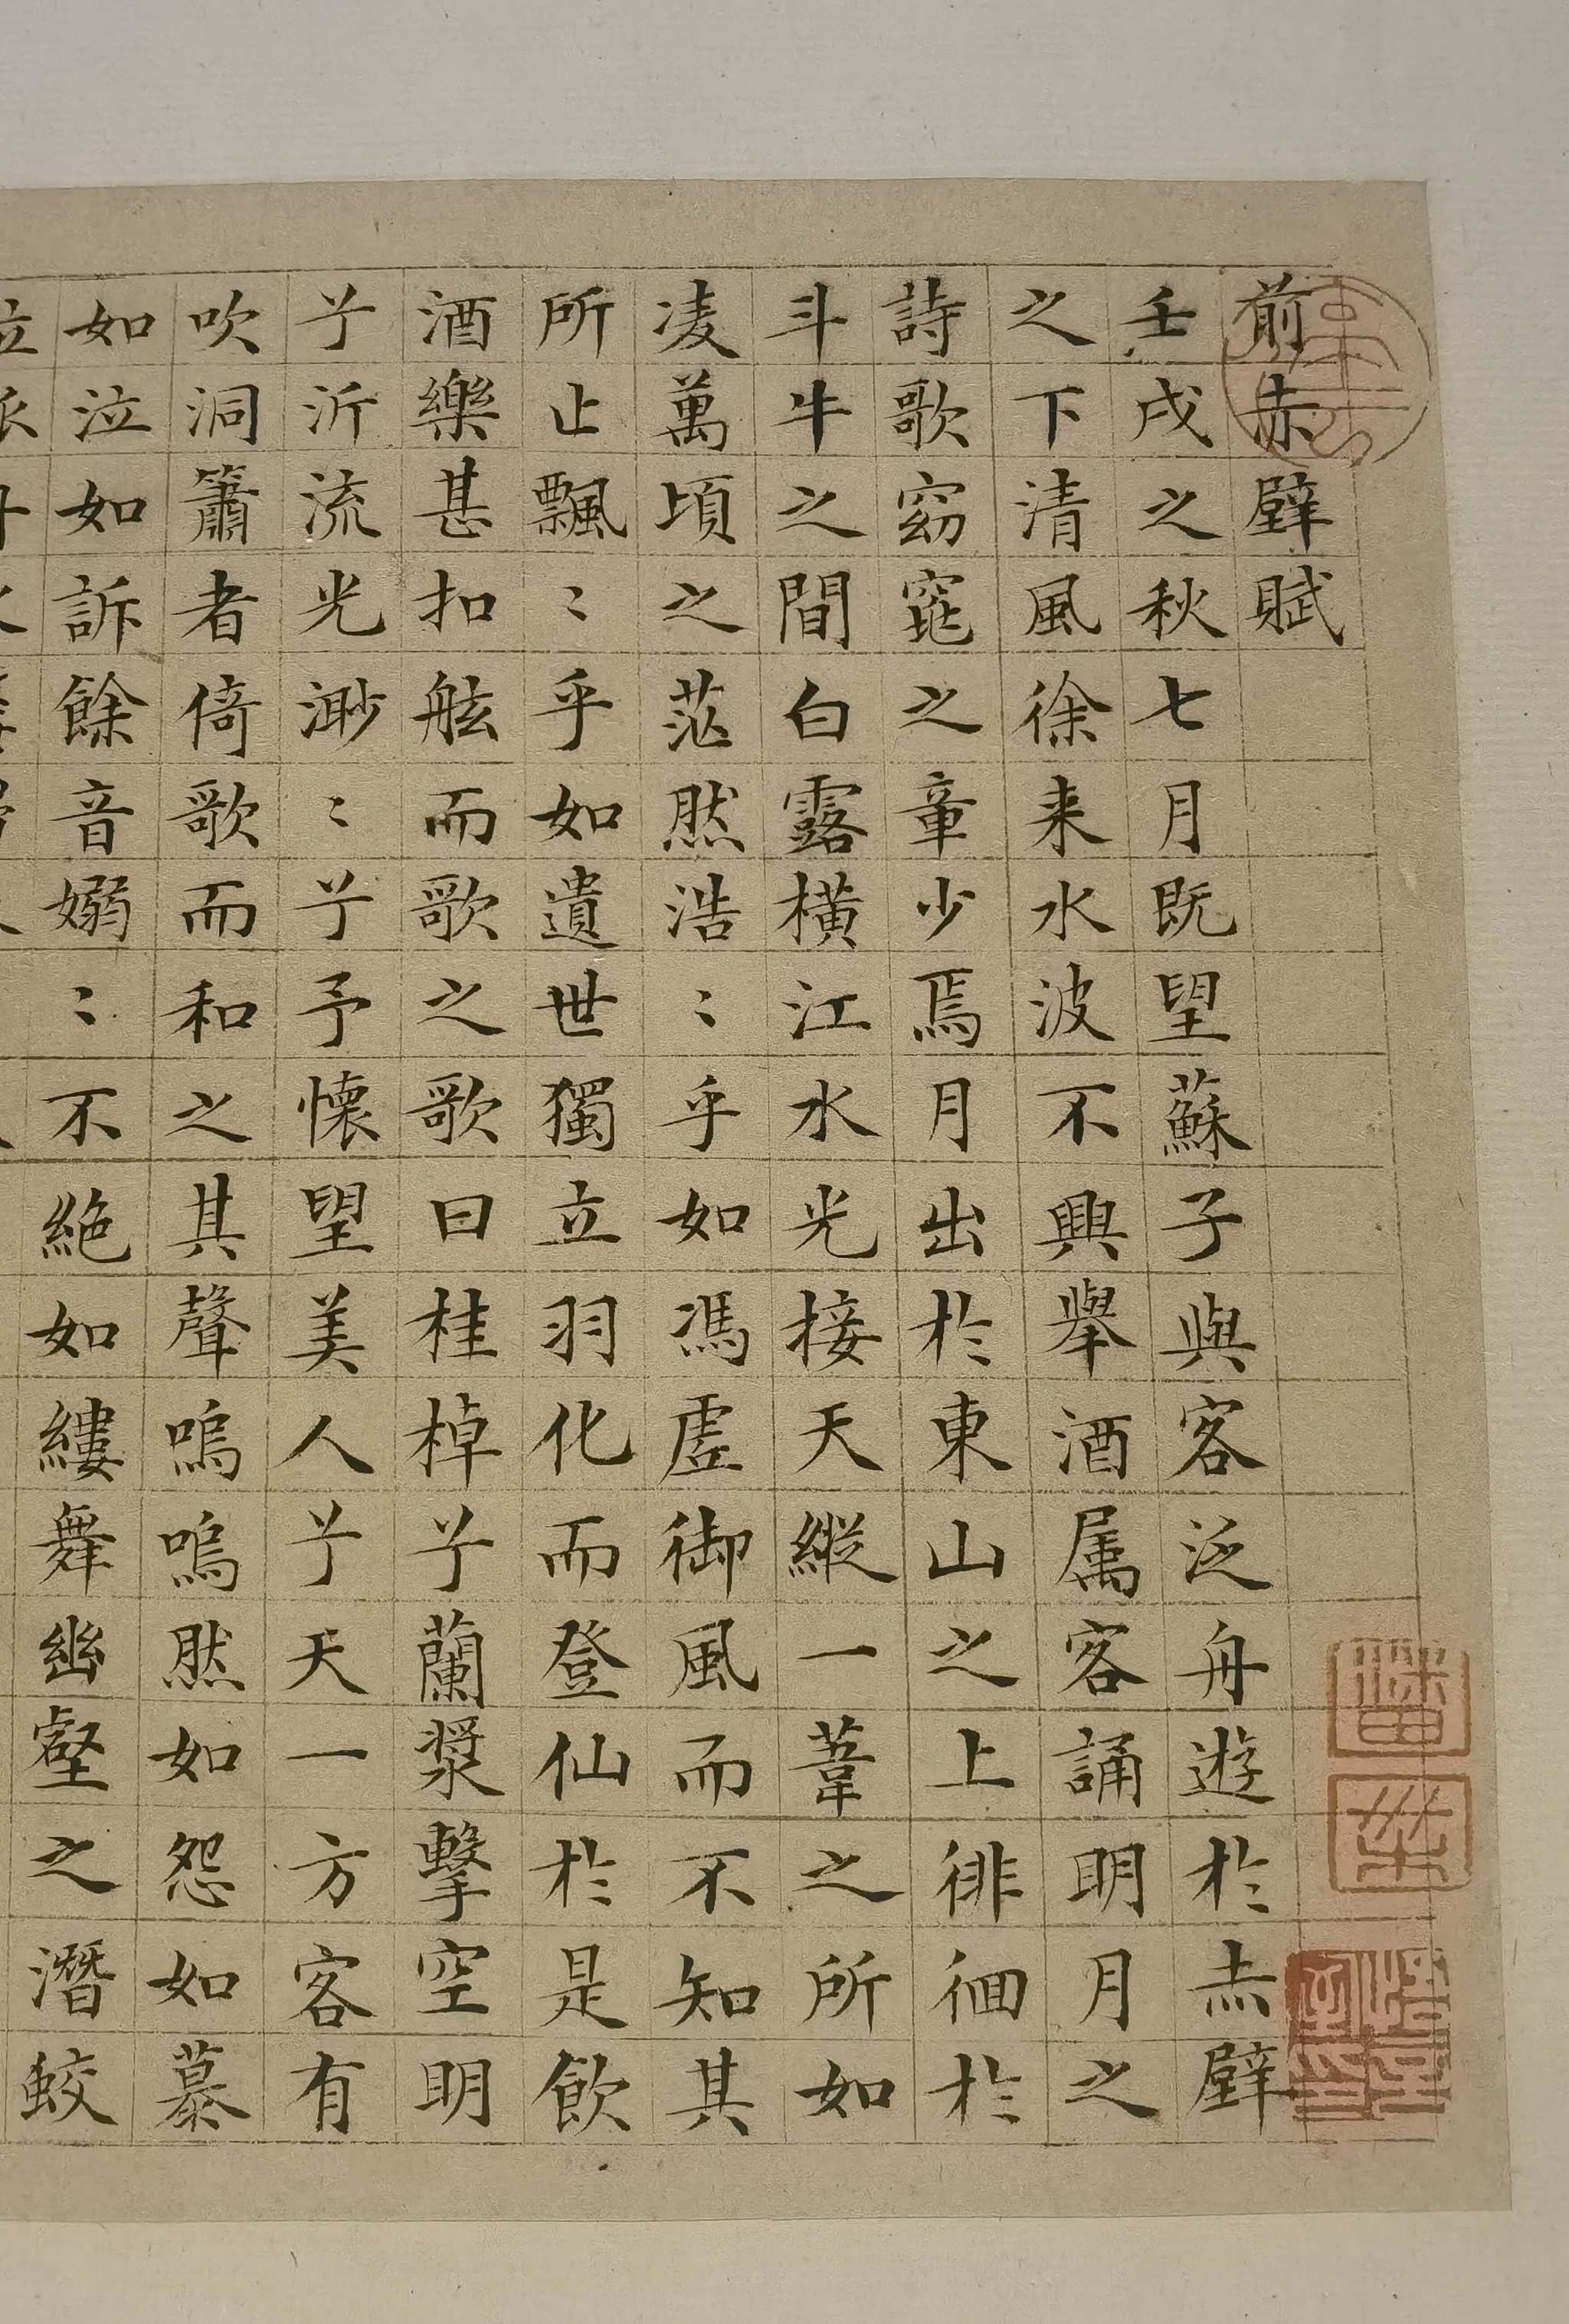 前赤壁賦
壬戌之秋七月既望蘇子與客泛舟遊於赤壁
之下清風徐来水波不興舉酒属客誦明月之
詩歌窈窕之章少焉月出於東山之上徘徊於
斗牛之間白露橫江水光接天縱一葦之所如
凌萬頃之茫然浩〻乎如馮虛御風而不知其
所止飄〻乎如遺世獨立羽化而登仙於是飲
酒樂甚扣舷而歌之歌曰桂棹兮蘭槳擊空明
兮沂流光渺〻兮予懷望美人兮天一方客有
吹洞簫者倚歌而和之其聲嗚嗚然如怨如慕
如泣如訴餘音嫋〻不絶如縷舞幽壑之潛蛟